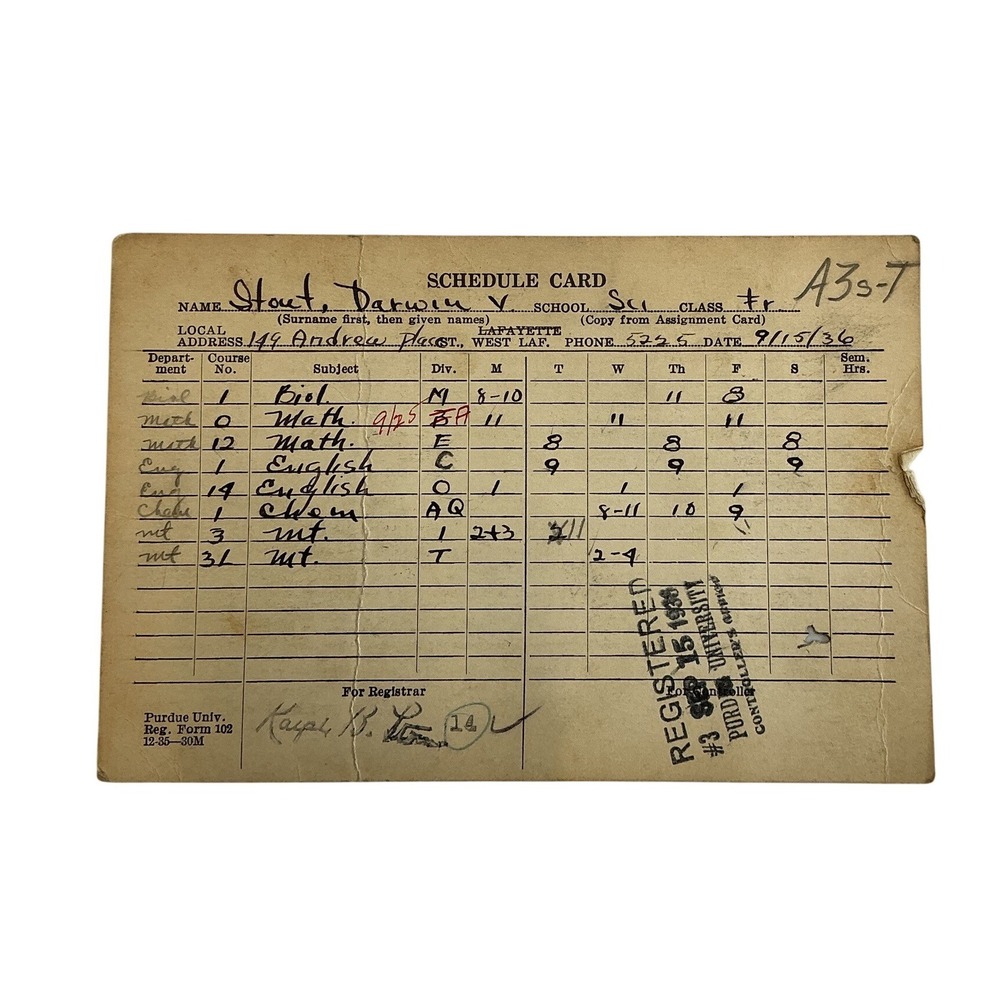 SCHEDULE CARD
A3s-T
NAME Stout, Darwin V. SCHOOL Sci CLASS Fr.
(Surname first, then given names) (Copy from Assignment Card)
LOCAL LAFAYETTE
ADDRESS 149 Andrew Place ST., WEST LAF. PHONE 5225 DATE 9/15/36
Depart-ment Course No. Subject Div. M T W Th F S Sem. Hrs.
Biol 1 Biol. M 8-10 11 8
Math 0 Math. 9/25 B A 11 11 11
Math 12 Math. E 8 8 8
Eng 1 English C 9 9 9
Eng 14 English O 1 1 1
Chem 1 Chem AQ 8-11 10 9
Mt 3 Mt. 1 2+3 11
Mt 31 Mt. T 2-4
For Registrar
Purdue Univ.
Reg. Form 102
12-35—30M
Ralph B. 14
REGISTERED
#3 SEP 15 1936
PURDUE UNIVERSITY
CONTROLLER'S OFFICE